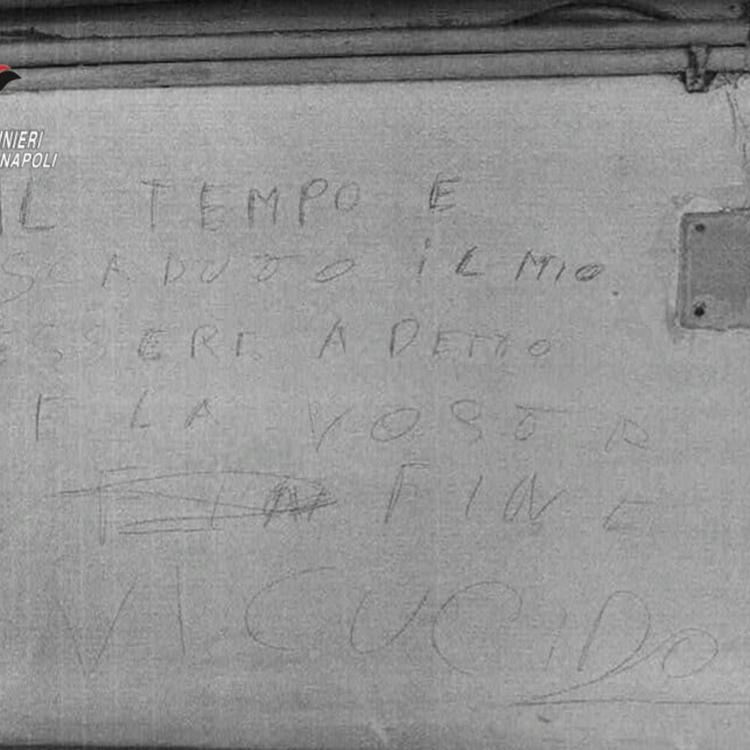 NIERI
NAPOLI
IL TEMPO E
SCADUTO IL MIO.
ESSERE A DETTO
E LA VOSTA
FINE
VI CUCIDO